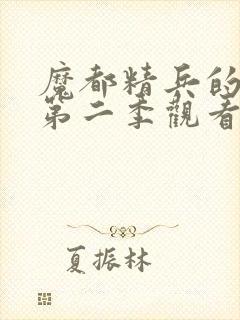 魔都精兵的
第二季觀看
夏振林